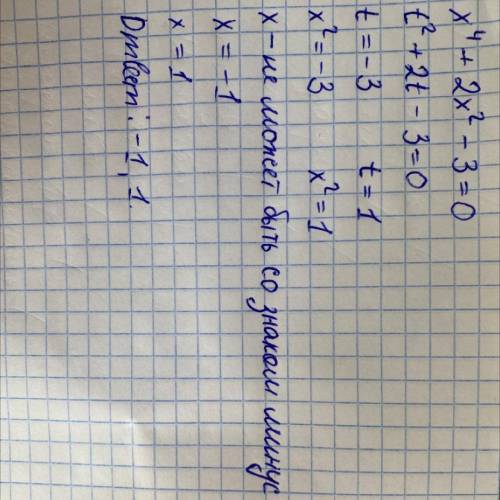 x⁴ + 2x² - 3 = 0
t² + 2t - 3 = 0
t = -3 t = 1
x² = -3 x² = 1
x - не может быть со знаком минус
x = -1
x = 1
Ответ: -1, 1.